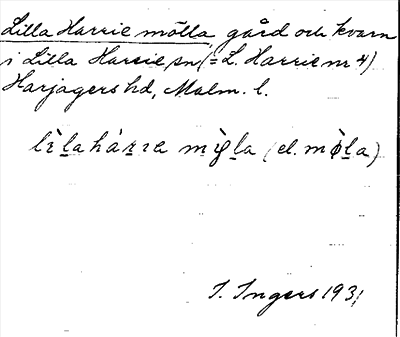 Lilla Harrie mölla, gård och kvarn
i Lilla Harrie sn (= L. Harrie nr 4)
Harjagers hd, Malm. l.
lìḻahárıa mỳḻa (el. mø̀ḻa)
I. Ingers 1931